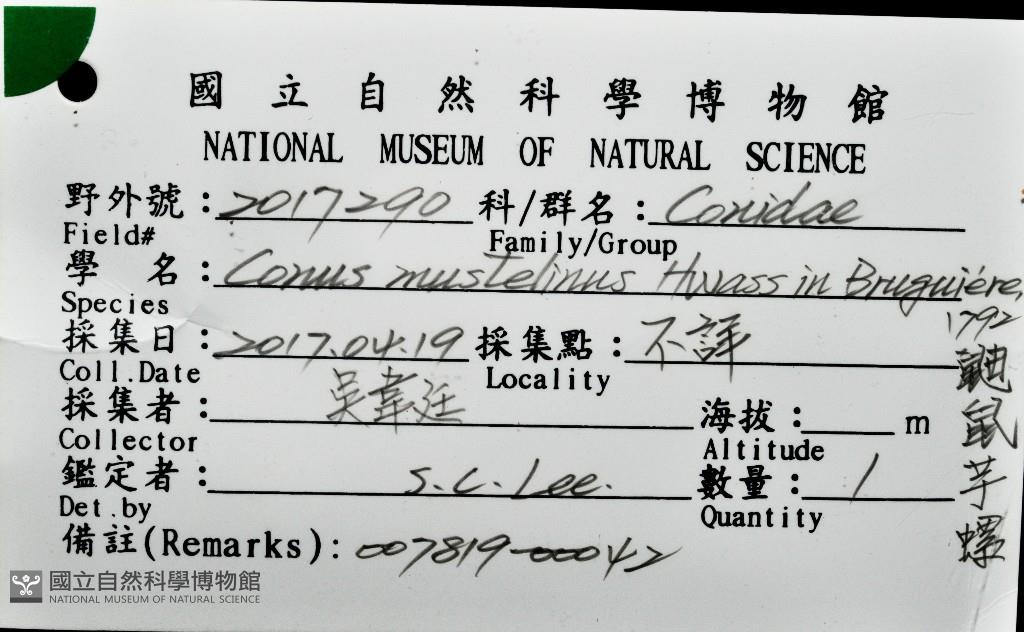 國立自然科學博物館
NATIONAL MUSEUM OF NATURAL SCIENCE
野外號：2017290 科/群名：Conidae
Field# Family/Group
學 名：Conus mustelinus Hwass in Bruguiére, 1792
Species
採集日：2017.04.19 採集點：不詳
Coll.Date Locality
採集者：吳韋廷 海拔： m
Collector Altitude
鑑定者：S.C.Lee. 數量：1
Det.by Quantity
備註(Remarks)：007819-00042
鼬鼠芋螺
國立自然科學博物館
NATIONAL MUSEUM OF NATURAL SCIENCE